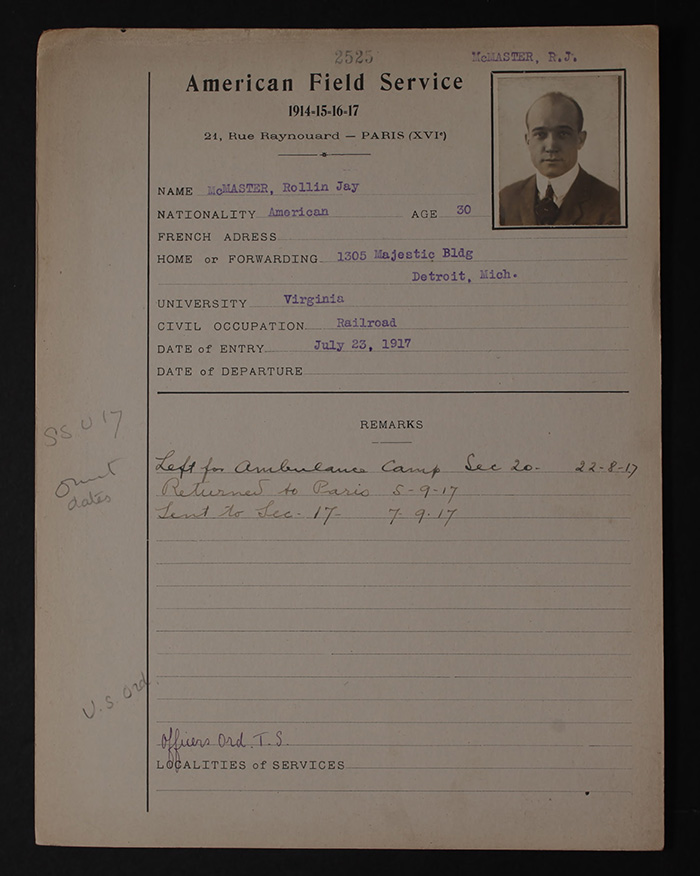 2525
McMASTER, R.J.
American Field Service
1914-15-16-17
21, Rue Raynouard — PARIS (XVIe)
NAME McMASTER, Rollin Jay
NATIONALITY American AGE 30
FRENCH ADRESS
HOME or FORWARDING 1305 Majestic Bldg
Detroit, Mich.
UNIVERSITY Virginia
CIVIL OCCUPATION Railroad
DATE of ENTRY July 23, 1917
DATE of DEPARTURE
REMARKS
SS.U 17
Left for Ambulance Camp Sec 20- 22-8-17
Omit
dates
Returned to Paris 5-9-17
Sent to Sec- 17- 7-9-17
U.S. Ord.
Officers Ord. T.S.
LOCALITIES of SERVICES